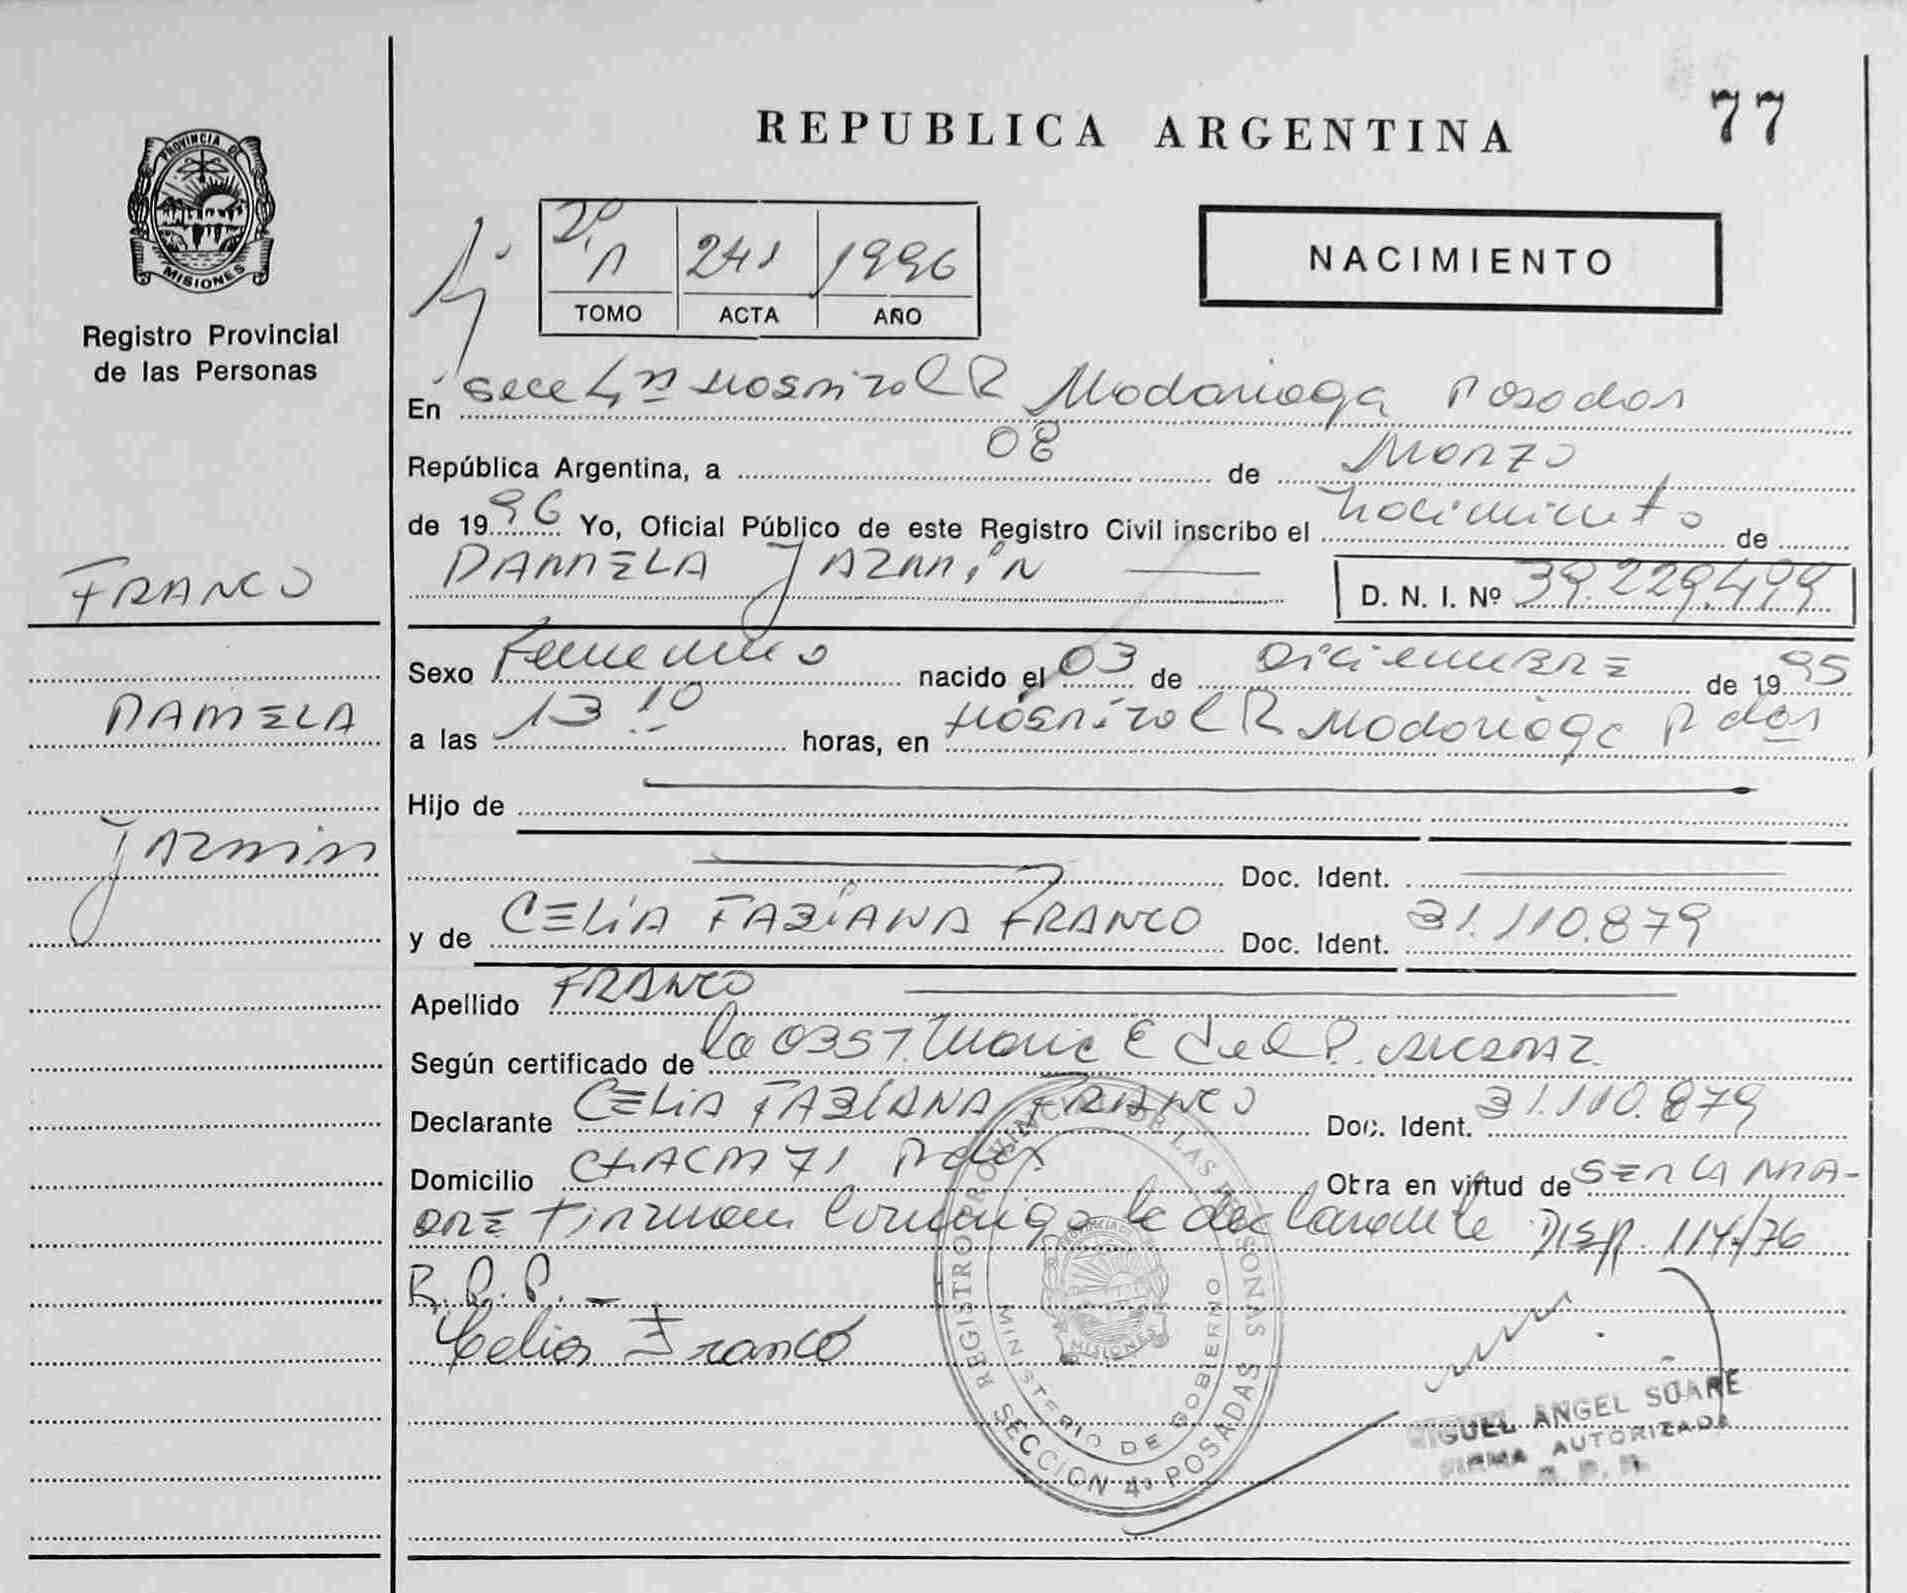 PROVINCIA DE
MISIONES
Registro Provincial
de las Personas
REPUBLICA ARGENTINA
77
241 1996
TOMO ACTA AÑO
NACIMIENTO
En Secc 4ª Hospital R Madariaga Posadas
República Argentina, a 08 de Marzo
de 1996 Yo, Oficial Público de este Registro Civil inscribo el nacimiento de
PAMELA JAZMIN
D. N. I. Nº 39.229.499
FRANCO
PAMELA
JAZMIN
Sexo Femenino nacido el 03 de DICIEMBRE de 1995
a las 13 10 horas, en Hospital R Madariaga Pdas
Hijo de
Doc. Ident.
y de CELIA FABIANA FRANCO Doc. Ident. 31.110.879
Apellido FRANCO
Según certificado de la OBST. Maria E del P.
Declarante CELIA FABIANA FRANCO Doc. Ident. 31.110.879
Domicilio CHACRA 71 Pdas Obra en virtud de SER LA MA-
DRE Firman conmigo la declarante DISP. 114/76
R.P.P.-
Celia Franco
REGISTRO PROVINCIAL DE LAS PERSONAS
MINISTERIO DE GOBIERNO
MISIONES
SECCION 4ª POSADAS
MIGUEL ANGEL SUARE
FIRMA AUTORIZADA
R. P. P.